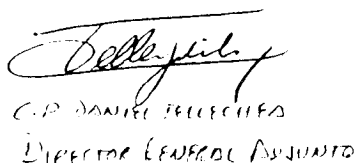 C.P. DANIEL TELLECHEA
DIRECTOR GENERAL ADJUNTO